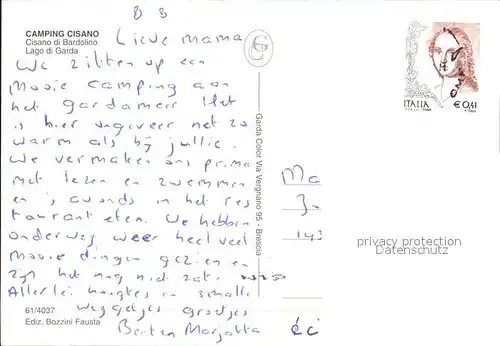 CAMPING CISANO
Cisano di Bardolino
Lago di Garda
Lieve mama
We zitten op een
mooie camping aan
het gardameer Het
is hier ongeveer net zo
warm als bij jullie.
We vermaken ons prima
met lezen en zwemmen
en 's avonds in het res
taurant eten. We hebben
onderweg weer heel veel
mooie dingen gezien en
zijn het nog niet zat.
Allerlei hoogtes en smalle
weggetjes groetjes
61/4037
Ediz. Bozzini Fausta
Garda Color Via Vergnano 95 - Brescia
ITALIA
€ 0,41
Ma
privacy protection
Dummytext